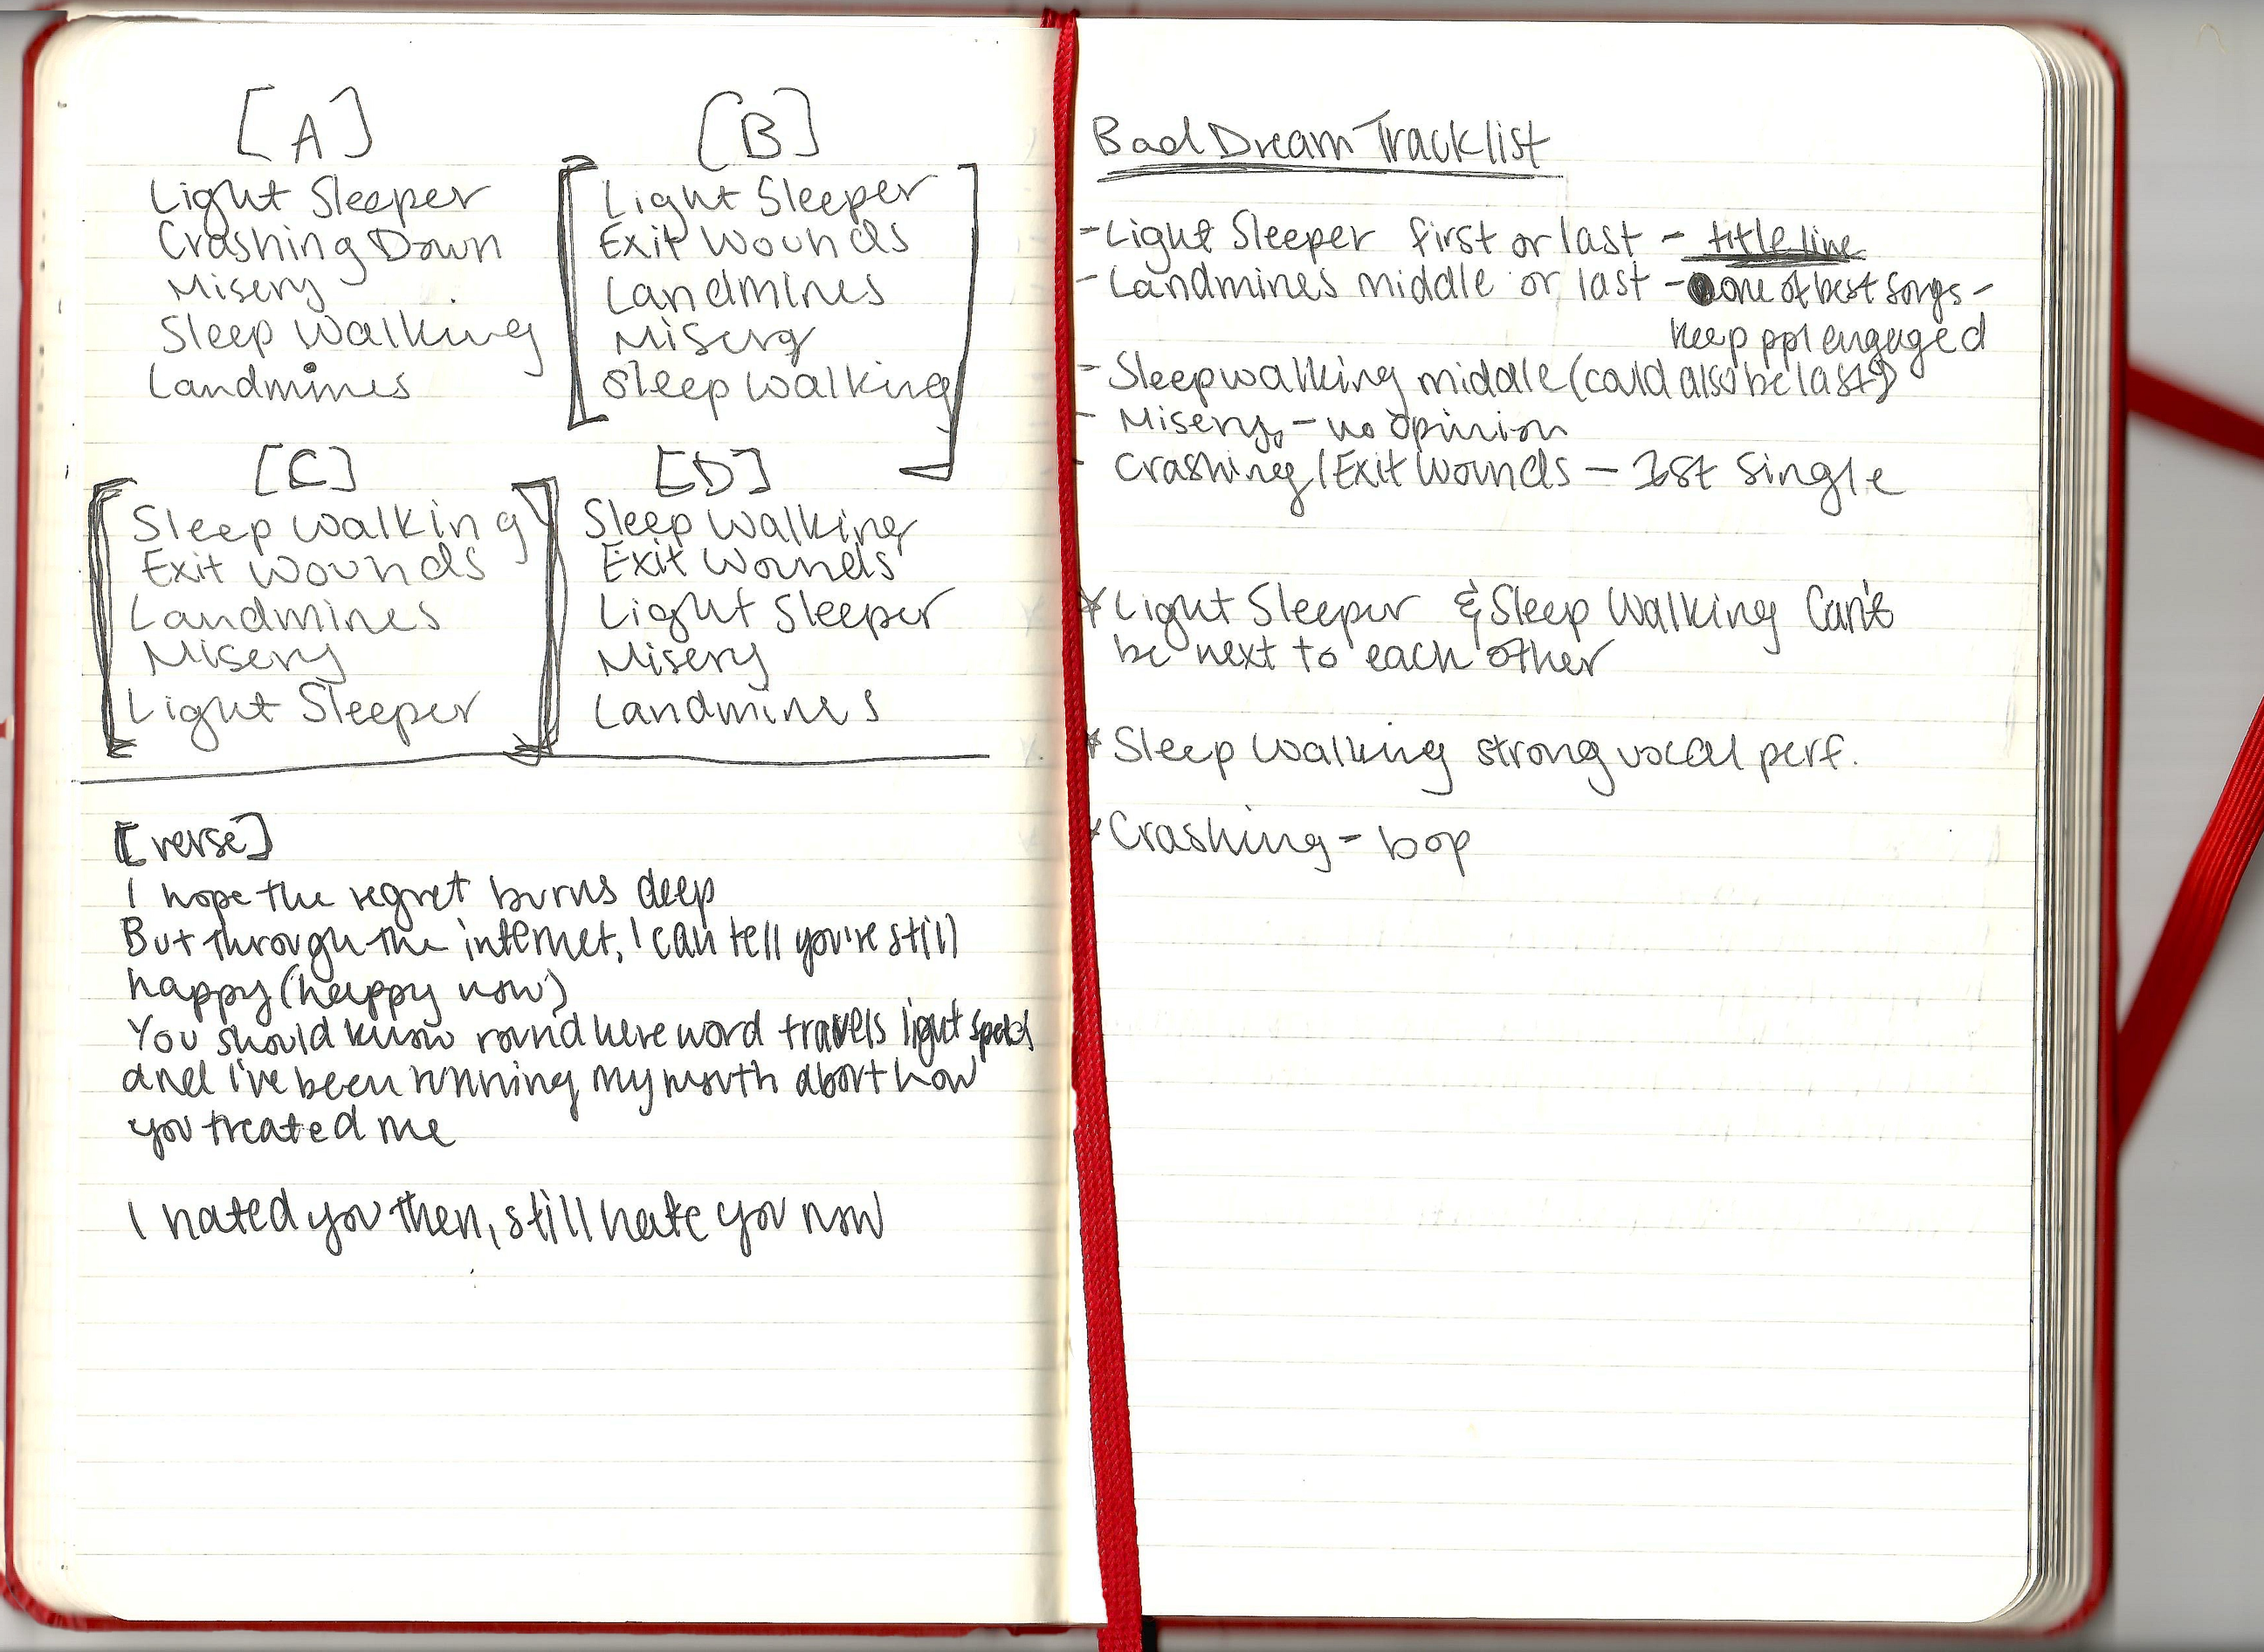 [A]
Light Sleeper
Crashing Down
Misery
Sleep Walking
Landmines
[B]
Light Sleeper
Exit Wounds
Landmines
Misery
Sleep Walking
[C]
Sleep Walking
Exit Wounds
Landmines
Misery
Light Sleeper
[D]
Sleep Walking
Exit Wounds
Light Sleeper
Misery
Landmines
[verse]
I hope the regret burns deep
But through the internet, I can tell you're still
happy (happy now)
You should know round here word travels light speed
and I've been running my mouth about how
you treated me
I hated you then, still hate you now
Bad Dream Tracklist
- Light Sleeper first or last - title line
- Landmines middle or last - one of best songs -
keep ppl engaged
- Sleepwalking middle (could also be last?)
- Misery - no opinion
- Crashing/Exit Wounds - 1st single
* Light Sleeper & Sleep Walking Can't
be next to each other
* Sleep Walking strong vocal perf.
* Crashing - bop